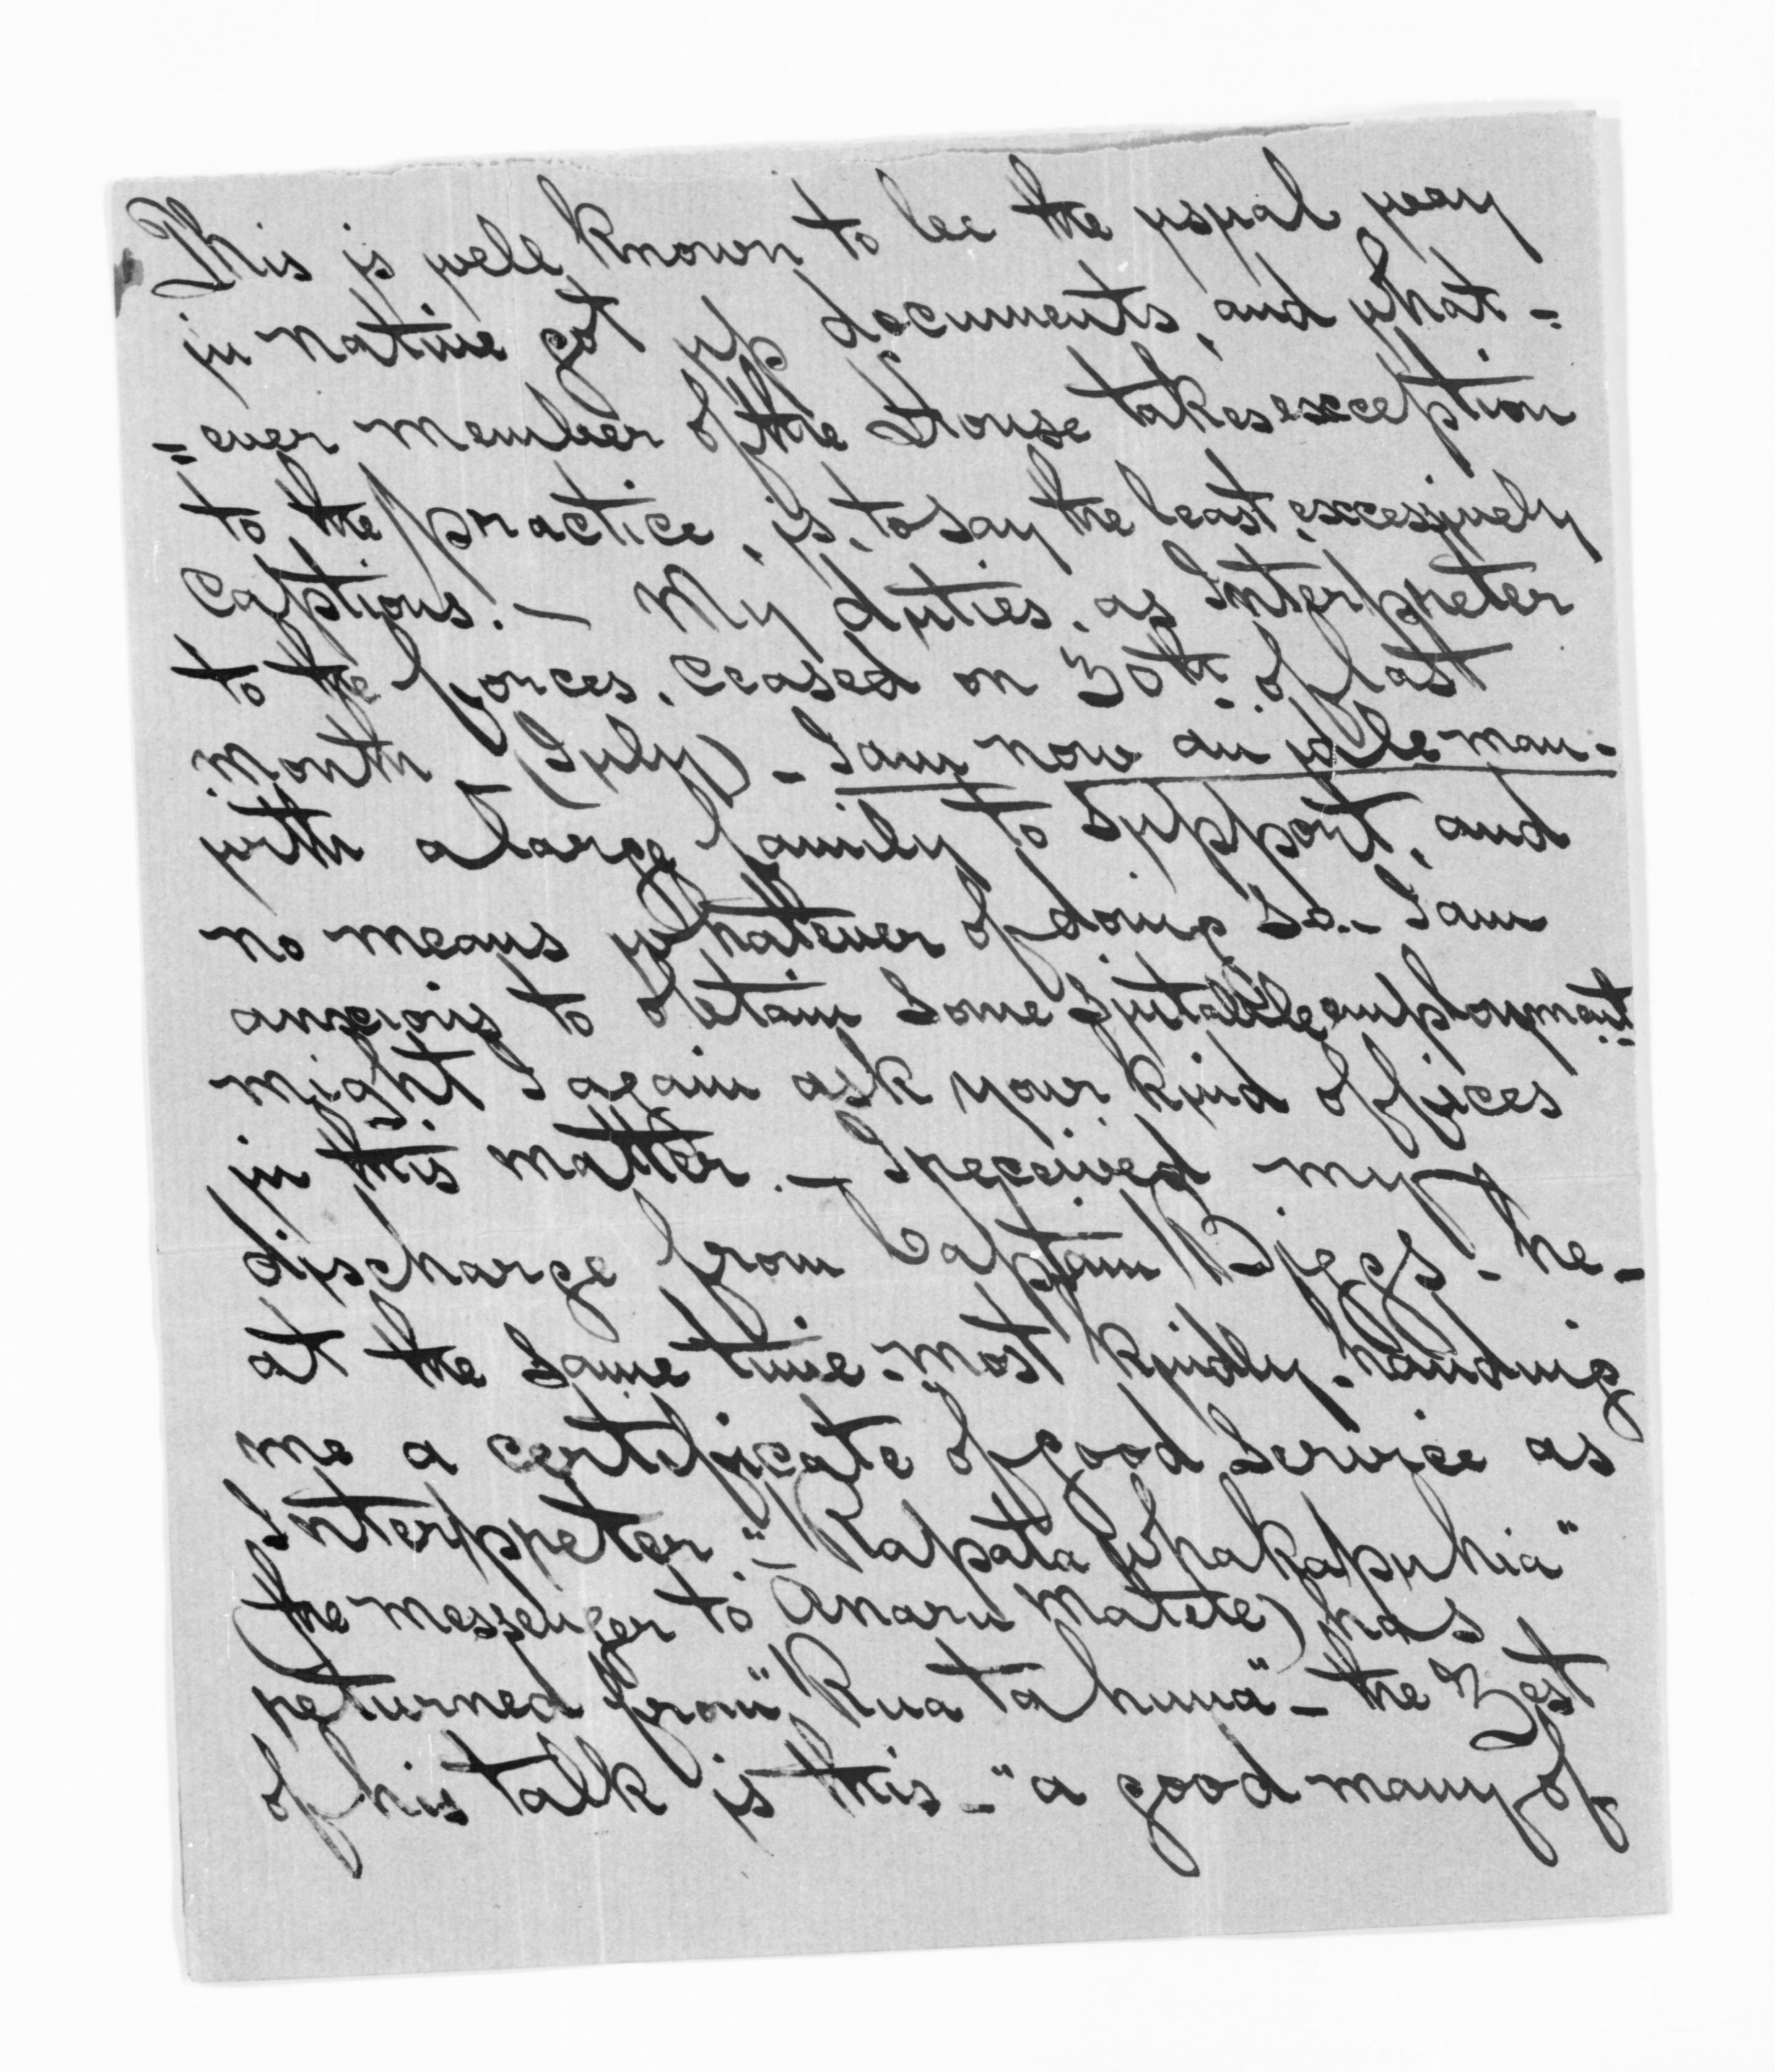 This is well known to be the usual way
in native got up documents, and what =
= ever member of the House takes exception
to the practice, is, to say the least, excessively
captious. — My duties, as Interpreter
to the forces, ceased on 30th. of last
month – (July) – I am now an idle man -
with a large family to support, and
no means whatever of doing so. – I am
anxious to obtain some suitable employment
might I again ask your kind offices
in this matter. — I received my
discharge from Captain Biggs – he –
at the same time – most kindly – handing
me a certificate of good service as
Interpreter. – "Rapata Whakapuhia"
(the messenger to Anaru Matete) has
returned from "Ruatahuna" – the Zest
of his talk is this – "a good many of